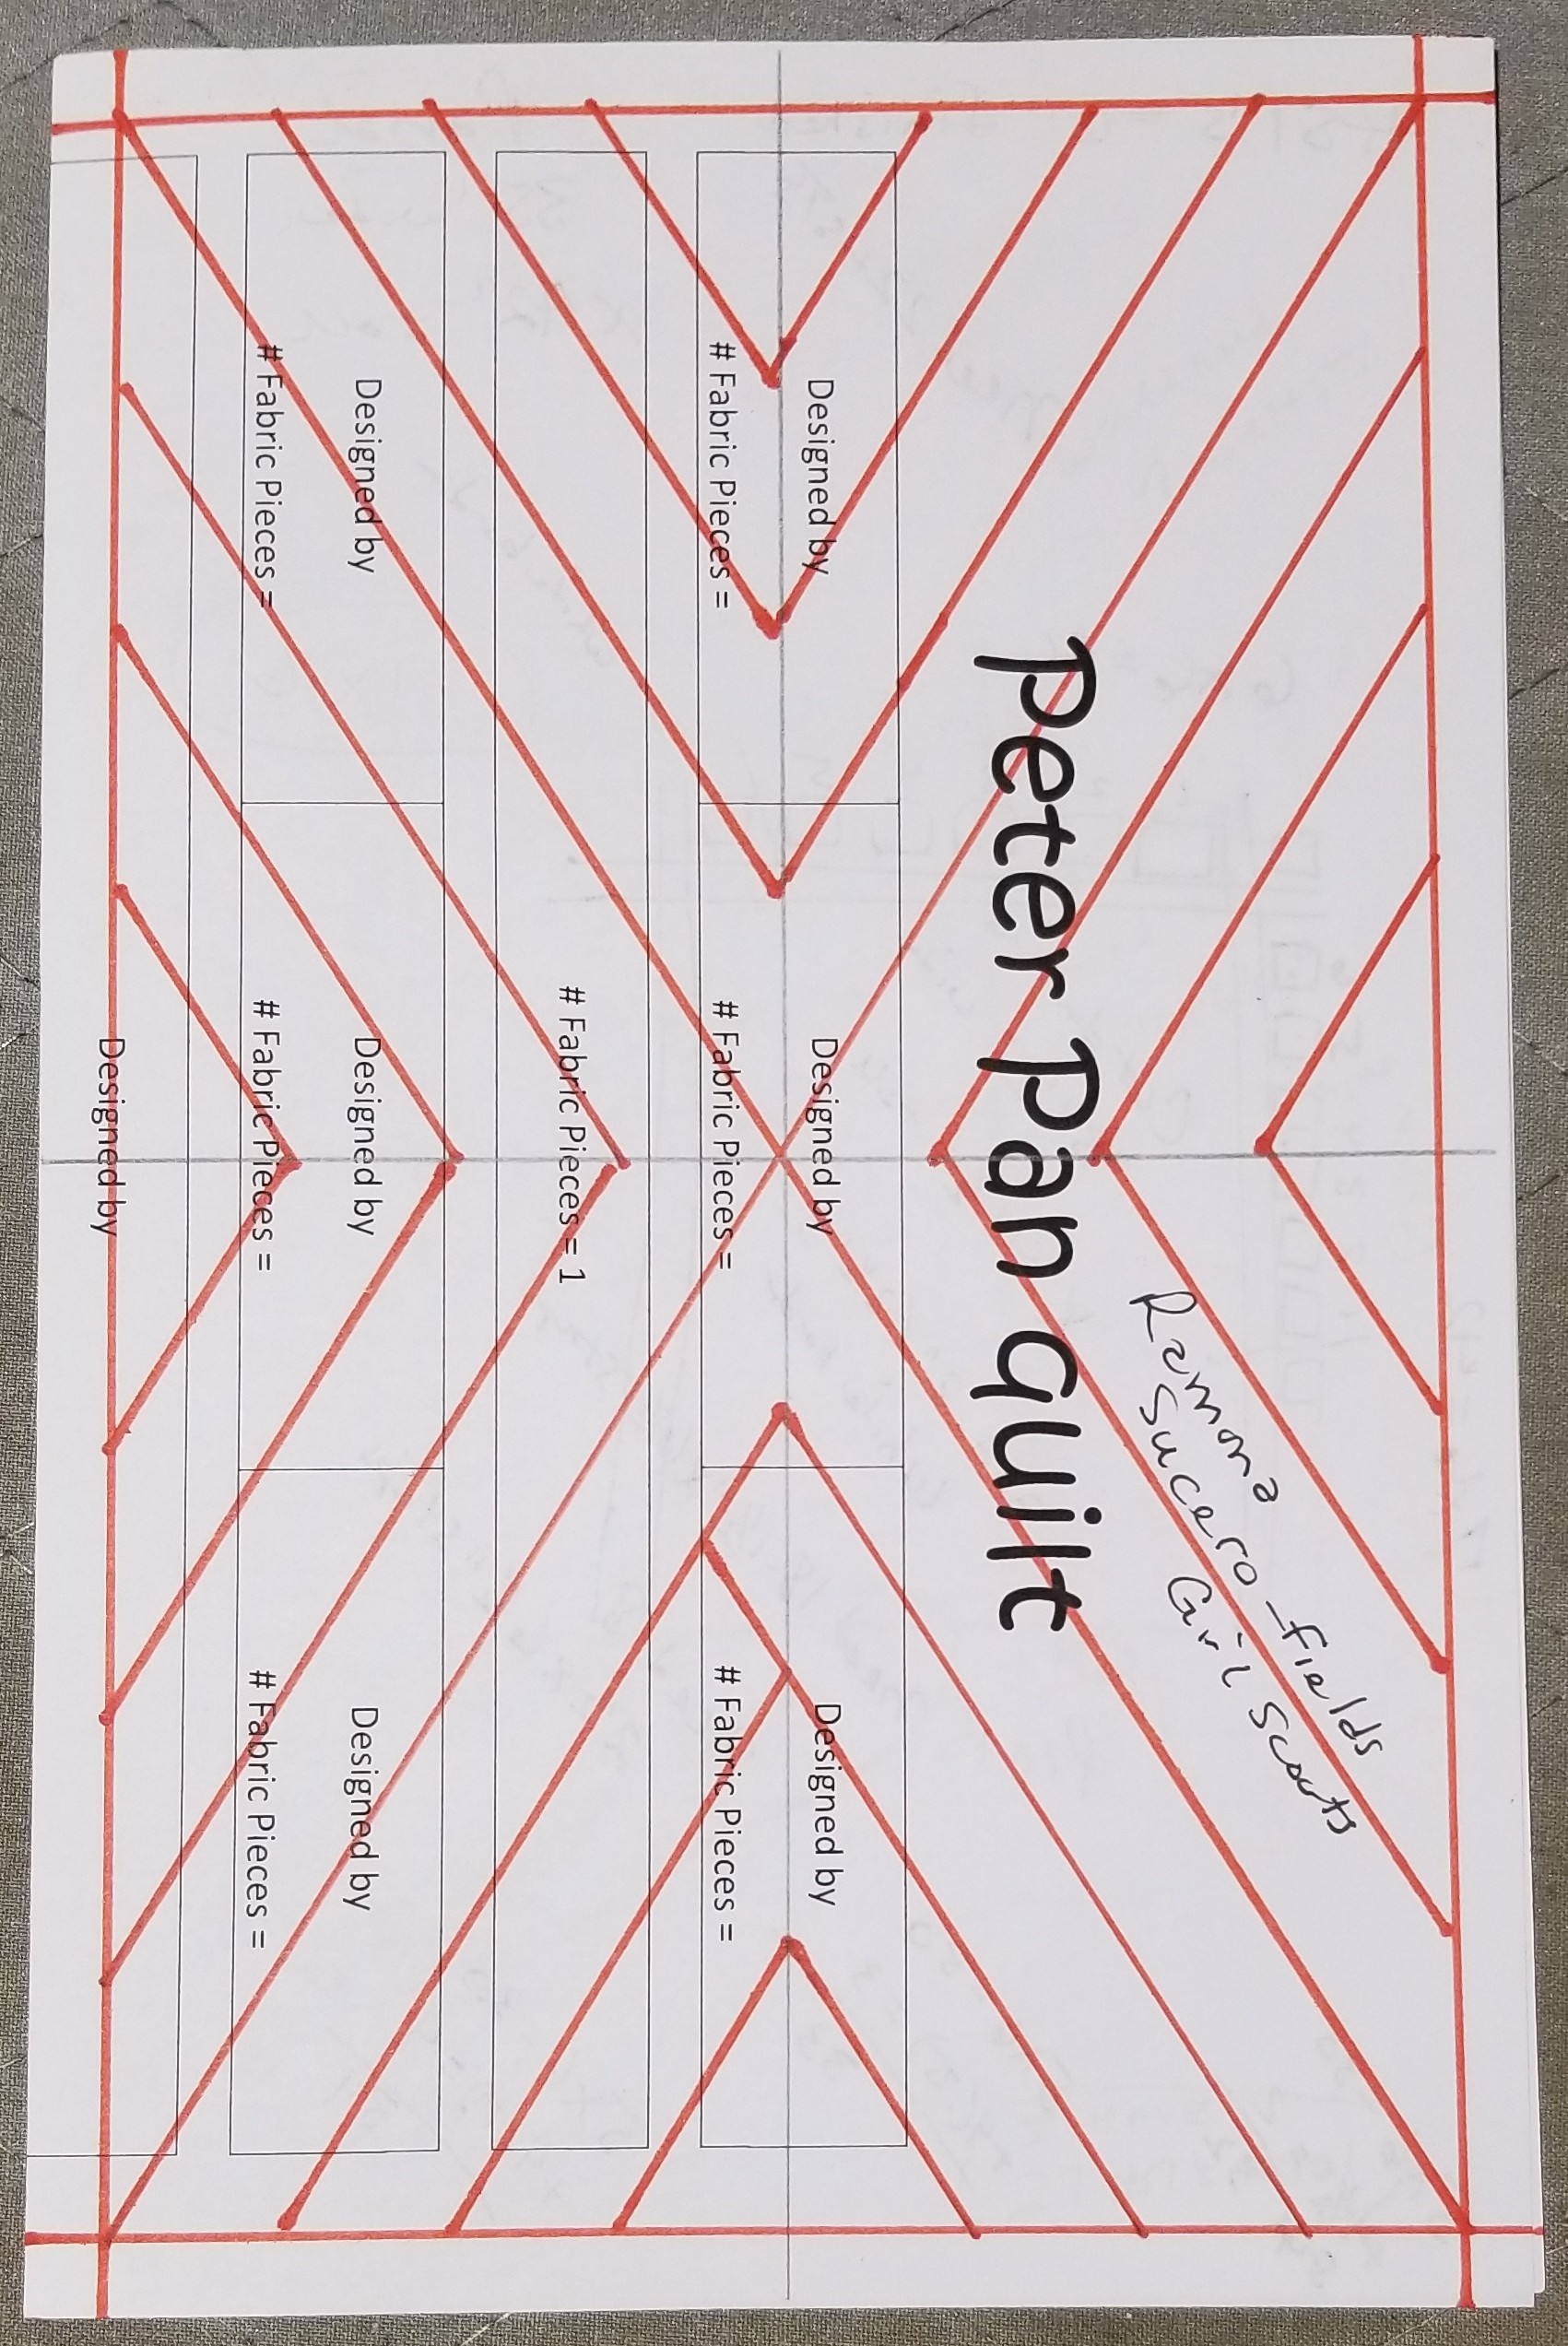 Ramona
Sucero-fields
Girl Scouts
Peter Pan quilt
Designed by
# Fabric Pieces =
Designed by
# Fabric Pieces =
Designed by
# Fabric Pieces =
# Fabric Pieces = 1
Designed by
# Fabric Pieces =
Designed by
# Fabric Pieces =
Designed by
# Fabric Pieces =
Designed by